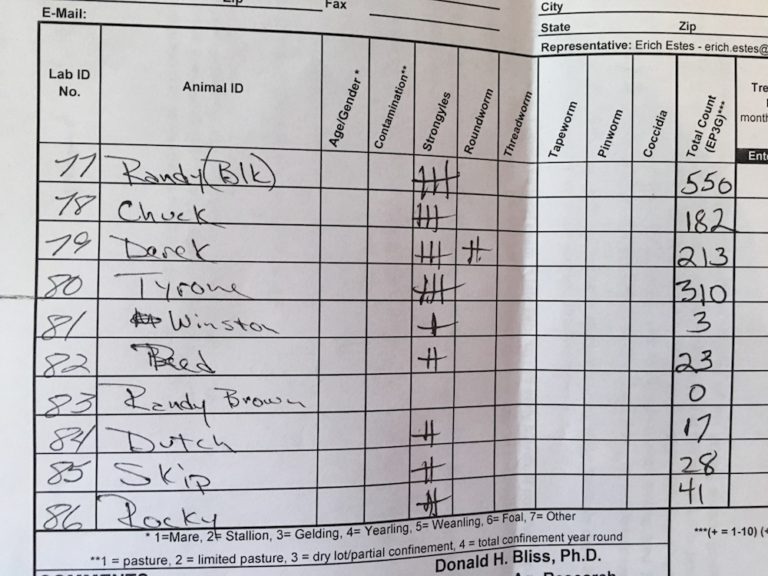 Zip Fax City
E-Mail: State Zip
Representative: Erich Estes - erich.estes@
Lab ID No. Animal ID Age/Gender * Contamination** Strongyles Roundworm Threadworm Tapeworm Pinworm Coccidia Total Count (EP3G)*** Tre month Ente
77 Randy (Blk) 550
78 Chuck 182
79 Darek 213
80 Tyrone 310
81 Winston 3
82 Reed 23
83 Randy Brown 0
84 Dutch 17
85 Skip 28
86 Rocky 41
* 1=Mare, 2= Stallion, 3= Gelding, 4= Yearling, 5= Weanling, 6= Foal, 7= Other ***(+ = 1-10) (+
**1 = pasture, 2 = limited pasture, 3 = dry lot/partial confinement, 4 = total confinement year round
COMMENTS Donald H. Bliss, Ph.D.